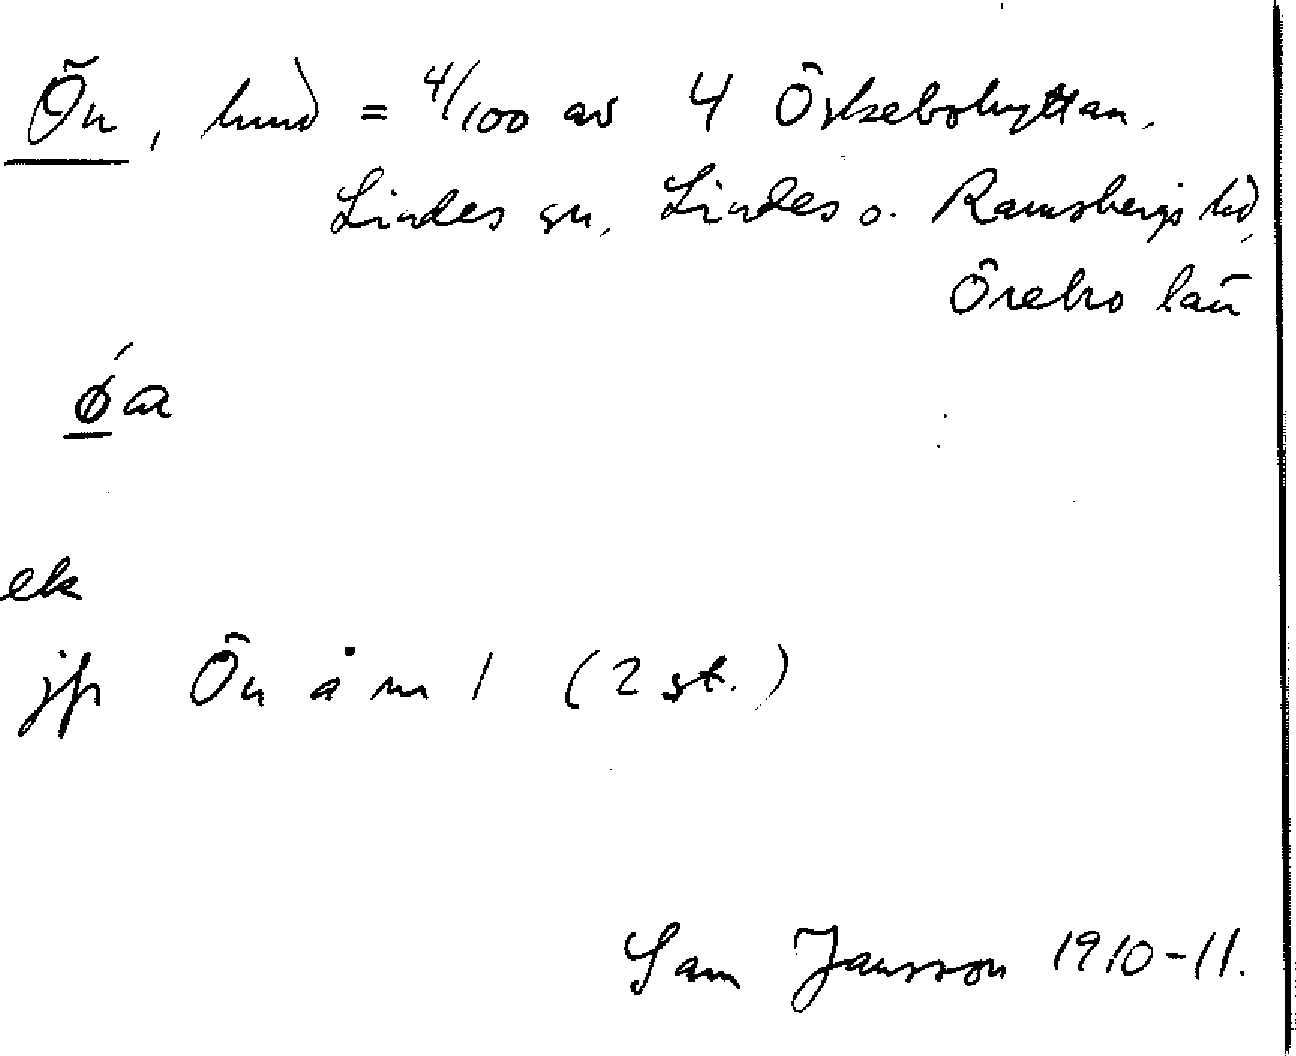 Ön, hmd = 4/100 av 4 Öskebohyttan.
Lindes sn, Lindes o. Ramsbergs hd,
Örebro län
ǿa
ek
jfr Ön å m 1 (2 st.)
Sam Jansson 1910-11.